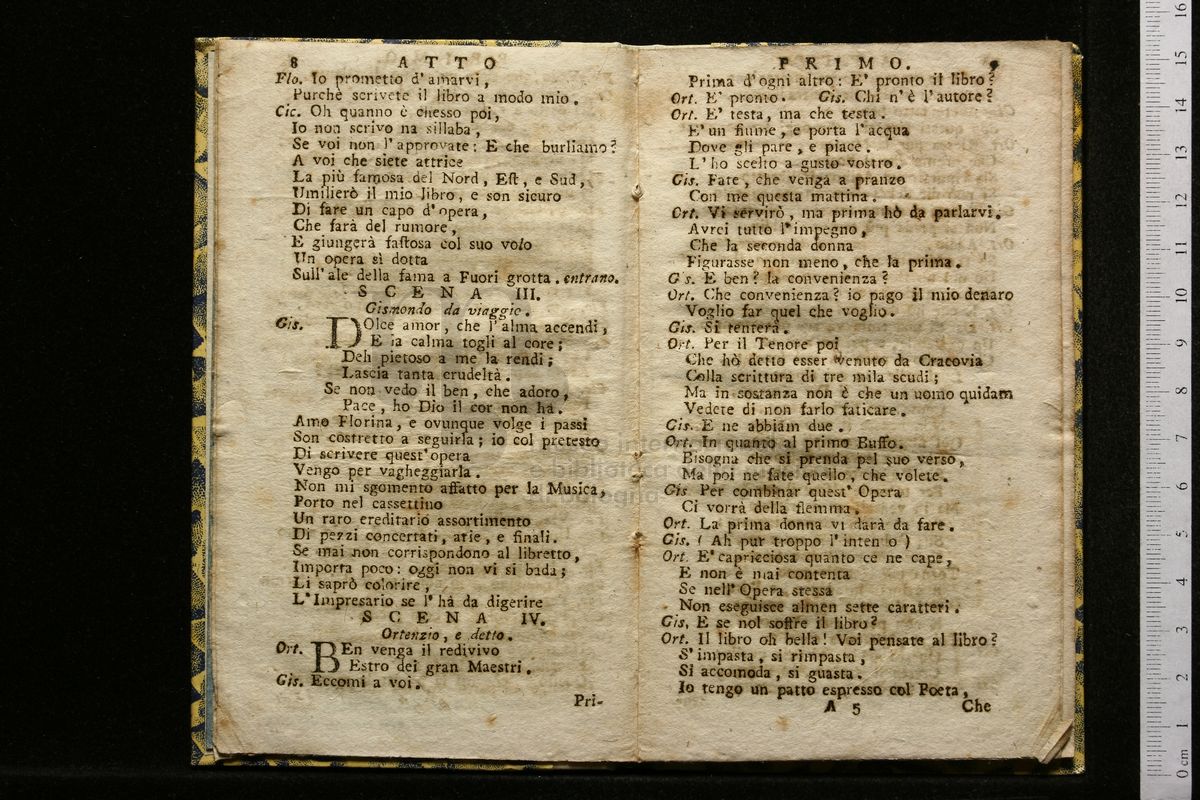 8 ATTO
Flo. Io prometto d'amarvi,
Purchè scrivete il libro a modo mio.
Cic. Oh quanno è chesso poi,
Io non scrivo na sillaba,
Se voi non l'approvate: E che burliamo?
A voi che siete attrice
La più famosa del Nord, Eſt, e Sud,
Umilierò il mio libro, e son sicuro
Di fare un capo d'opera,
Che farà del rumore,
E giungerà faſtosa col suo volo
Un opera sì dotta
Sull'ale della fama a Fuori grotta. entrano.
SCENA III.
Gismondo da viaggio.
Gis. DOlce amor, che l'alma accendi,
E la calma togli al core;
Deh pietoso a me la rendi;
Lascia tanta crudeltà.
Se non vedo il ben, che adoro,
Pace, ho Dio il cor non ha.
Amo Florina, e ovunque volge i passi
Son costretto a seguirla; io col pretesto
Di scrivere quest'opera
Vengo per vagheggiarla.
Non mi sgomento affatto per la Musica,
Porto nel cassettino
Un raro ereditario assortimento
Di pezzi concertati, arie, e finali.
Se mai non corrispondono al libretto,
Importa poco: oggi non vi si bada;
Li saprò colorire,
L'Impresario se l'hà da digerire
SCENA IV.
Ortenzio, e detto.
Ort. BEn venga il redivivo
Estro dei gran Maestri.
Gis. Eccomi a voi.
Pri-
PRIMO. 9
Prima d'ogni altro: E' pronto il libro?
Ort. E' pronto. Gis. Chi n'è l'autore?
Ort. E' testa, ma che testa.
E'un fiume, e porta l'acqua
Dove gli pare, e piace.
L'ho scelto a gusto vostro.
Gis. Fate, che venga a pranzo
Con me questa mattina.
Ort. Vi servirò, ma prima hò da parlarvi.
Avrei tutto l'impegno,
Che la seconda donna
Figurasse non meno, che la prima.
G s. E ben? la convenienza?
Ort. Che convenienza? io pago il mio denaro
Voglio far quel che voglio.
Gis. Si tenterà.
Ort. Per il Tenore poi
Che hò detto esser venuto da Cracovia
Colla scrittura di tre mila scudi;
Ma in sostanza non è che un uomo quidam
Vedete di non farlo faticare.
Gis. E ne abbiam due.
Ort. In quanto al primo Buffo.
Bisogna che si prenda pel suo verso,
Ma poi ne fate quello, che volete.
Gis Per combinar quest' Opera
Ci vorrà della flemma.
Ort. La prima donna vi darà da fare.
Gis. ( Ah pur troppo l'inten o )
Ort. E'capricciosa quanto ce ne cape,
E non è mai contenta
Se nell'Opera stessa
Non eseguisce almen sette caratteri.
Gis, E se nol soffre il libro?
Ort. Il libro oh bella! Voi pensate al libro?
S'impasta, si rimpasta,
Si accomoda, si guasta.
Io tengo un patto espresso col Poeta,
A 5 Che